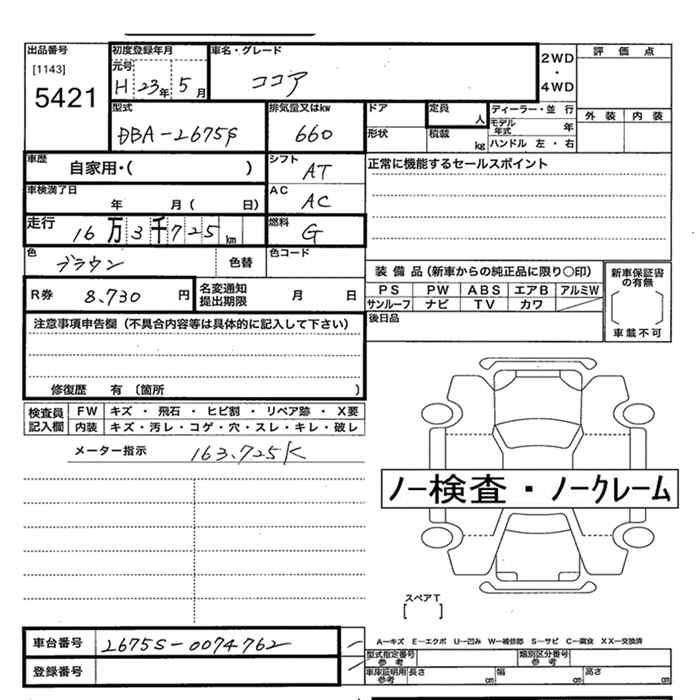 出品番号
[1143]
5421
初度登録年月
元号
H 23年 5月
車名・グレード
ココア
2WD
・
4WD
評価点
外装 内装
型式
DBA-L675S
排気量又はkw
660
ドア
形状
定員
人
積載
kg
ディーラー・並 行
モデル年式 年
ハンドル 左・右
車歴
自家用・( )
シフト
AT
正常に機能するセールスポイント
車検満了日
年 月( 日)
AC
AC
走行
16万3千725km
燃料
G
色
ブラウン
色替
色コード
装備品(新車からの純正品に限り○印)
PS PW ABS エアB アルミW
サンルーフ ナビ TV カワ
新車保証書の有無
車載不可
R券 8,730 円
名変通知
提出期限
月 日
後日品
注意事項申告欄(不具合内容等は具体的に記入して下さい)
修復歴 有〔箇所 〕
検査員
記入欄
FW キズ・飛石・ヒビ割・リペア跡・X要
内装 キズ・汚レ・コゲ・穴・スレ・キレ・破レ
メーター指示 163,725K
ノー検査・ノークレーム
スペアT
[ ]
車台番号 L675S-0074762
登録番号
A-キズ E-エクボ U-凹み W-補修跡 S-サビ C-腐食 XX-交換済
型式指定番号
参考
類別区分番号
参考
車庫証明用
参考
長さ cm 幅 cm 高さ cm